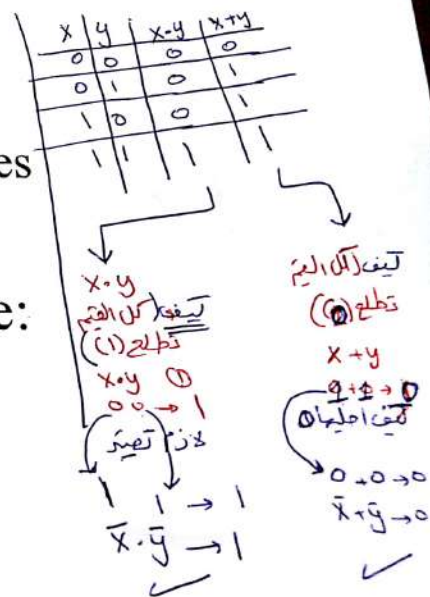 x y x·y x+y
0 0 0 0
0 1 0 1
1 0 0 1
1 1 1 1
es
e:
x·y
كيف (كل القيم
تطلع (1)
x·y ①
0 0 → 1
لازم تصير
1 1 → 1
x̄·ȳ → 1
✓
كيف (كل القيم
تطلع (0)
x+y
1+1 → 0
كيف اخليها 0
0+0→0
x̄+ȳ→0
✓